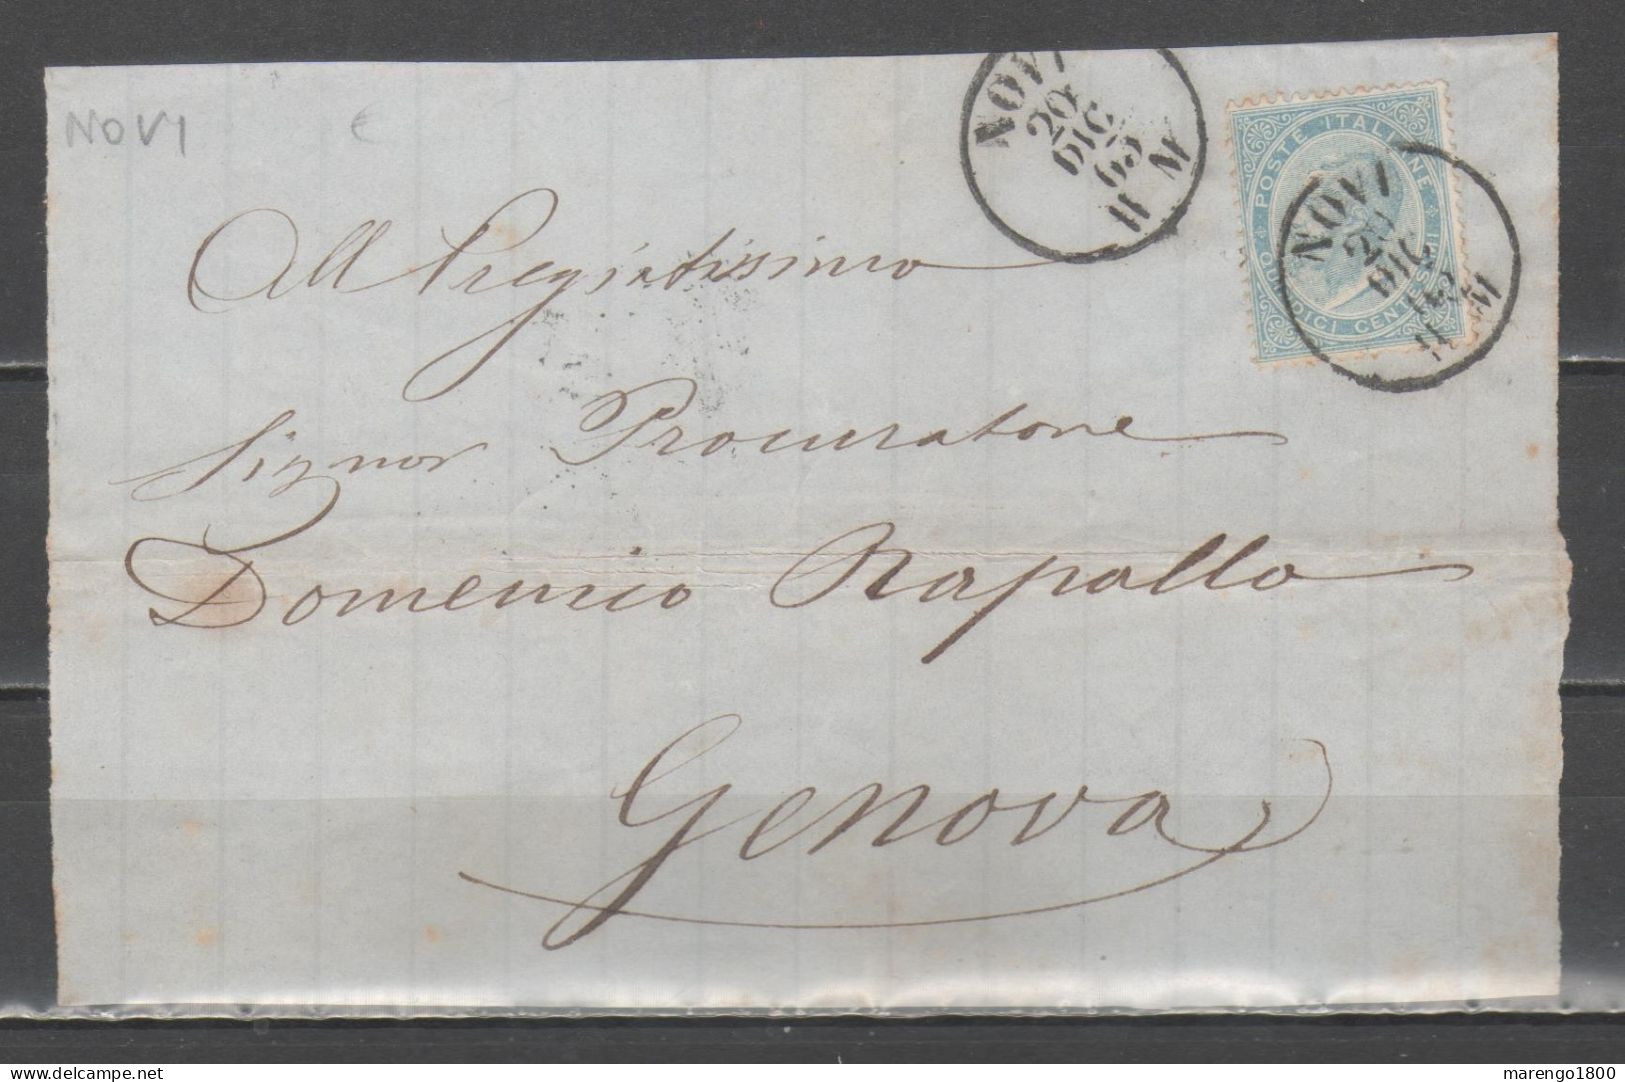 NOVI
€
NOVI
20
DIC
63
11 M
POSTE ITALIANE
QUINDICI CENTESIMI
NOVI
20
DIC
63
11 M
All Pregiatissimo
Signor Procuratore
Domenico Rapallo
Genova
delcampe.net
marengo1800